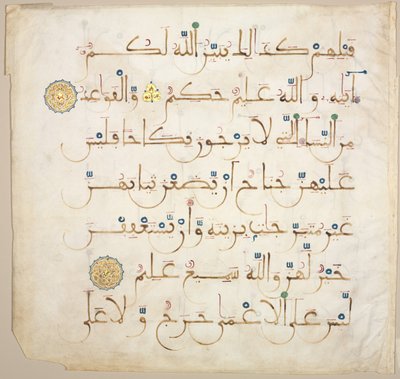 قبلهم كذلك يبين الله لكم
ءايته والله عليم حكيم والقواعد
من النسا التي لا يرجون نكاحا فليس
عليهن جناح أن يضعن ثيابهن
غير متبرجت بزينة وأن يستعففن
خير لهن والله سميع عليم
ليس على الاعمى حرج ولا على